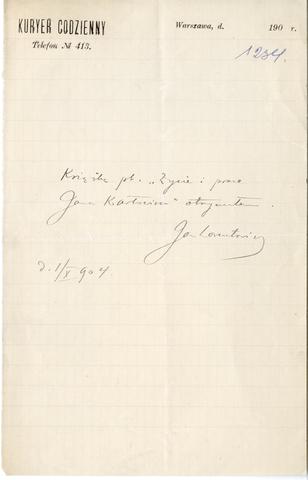 KURYER CODZIENNY
Telefon № 413.
Warszawa, d. 190 r.
1234
Książkę pt. „Życie i prace
Jana Karłowicza" otrzymałem.
Jan Lorentowicz
d. 1/X 904.